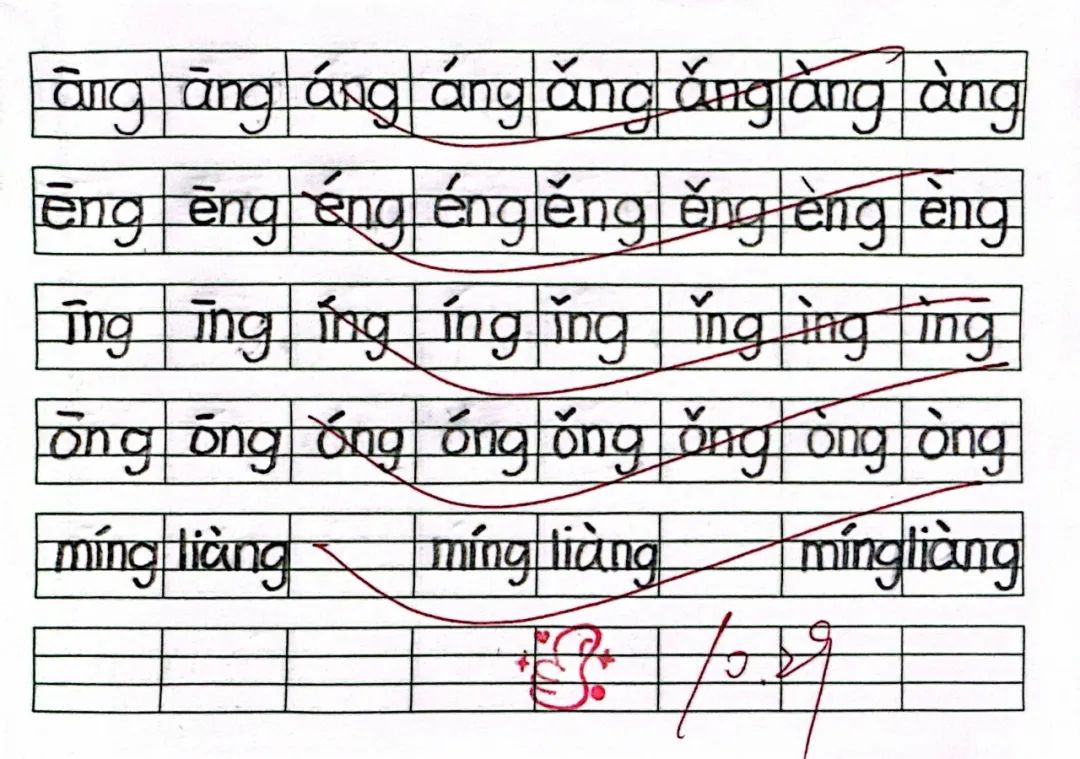 āng āng áng áng ǎng ǎng àng àng
ēng ēng éng éng ěng ěng èng èng
īng īng íng íng ǐng ǐng ìng ìng
ōng ōng óng óng ǒng ǒng òng òng
míng liàng míng liàng míng liàng
10.29